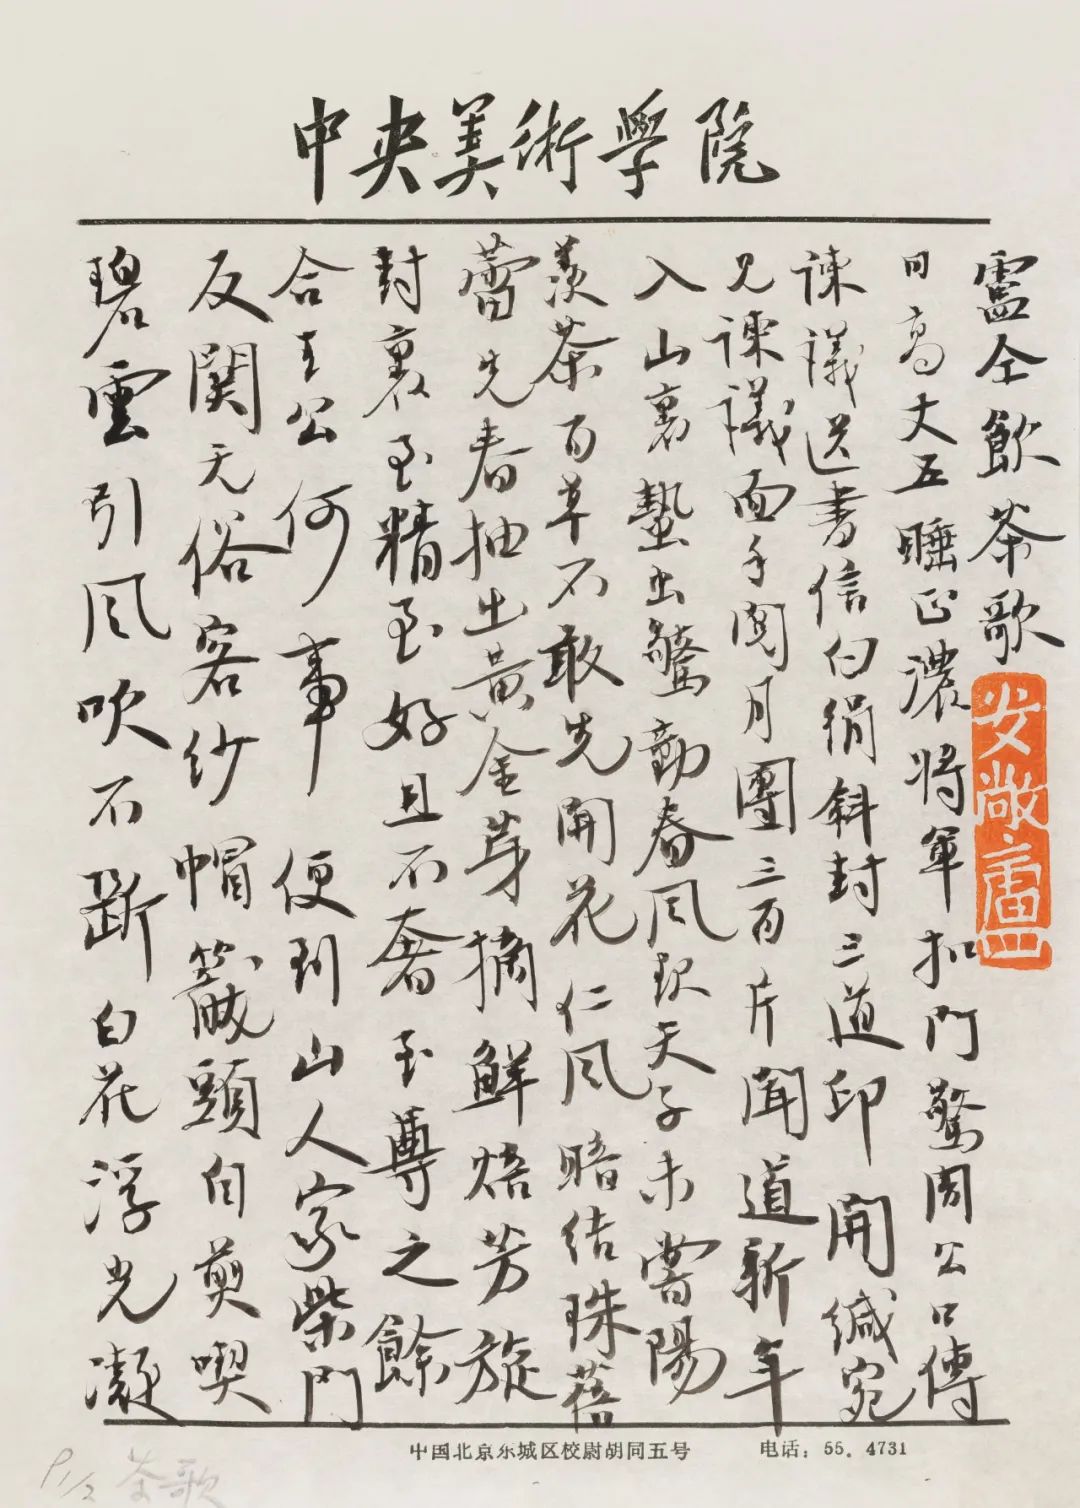 中央美術學院
盧仝飲茶歌
日高丈五睡正濃將軍扣門驚周公口傳
諫議送書信白絹斜封三道印開緘宛
見諫議面手閱月團三百片聞道新年
入山裏蟄虫驚動春風起天子未嘗陽
羨茶百草不敢先開花仁風暗结珠蓓
蕾先春抽出黄金芽摘鮮焙芳旋
封裏至精至好且不奢至尊之餘
合王公何事便到山人家柴門
反関无俗客纱帽籠頭自煎喫
碧雲引風吹不斷白花浮光凝
中国北京东城区校尉胡同五号 电话：55．4731
P1/2 茶歌